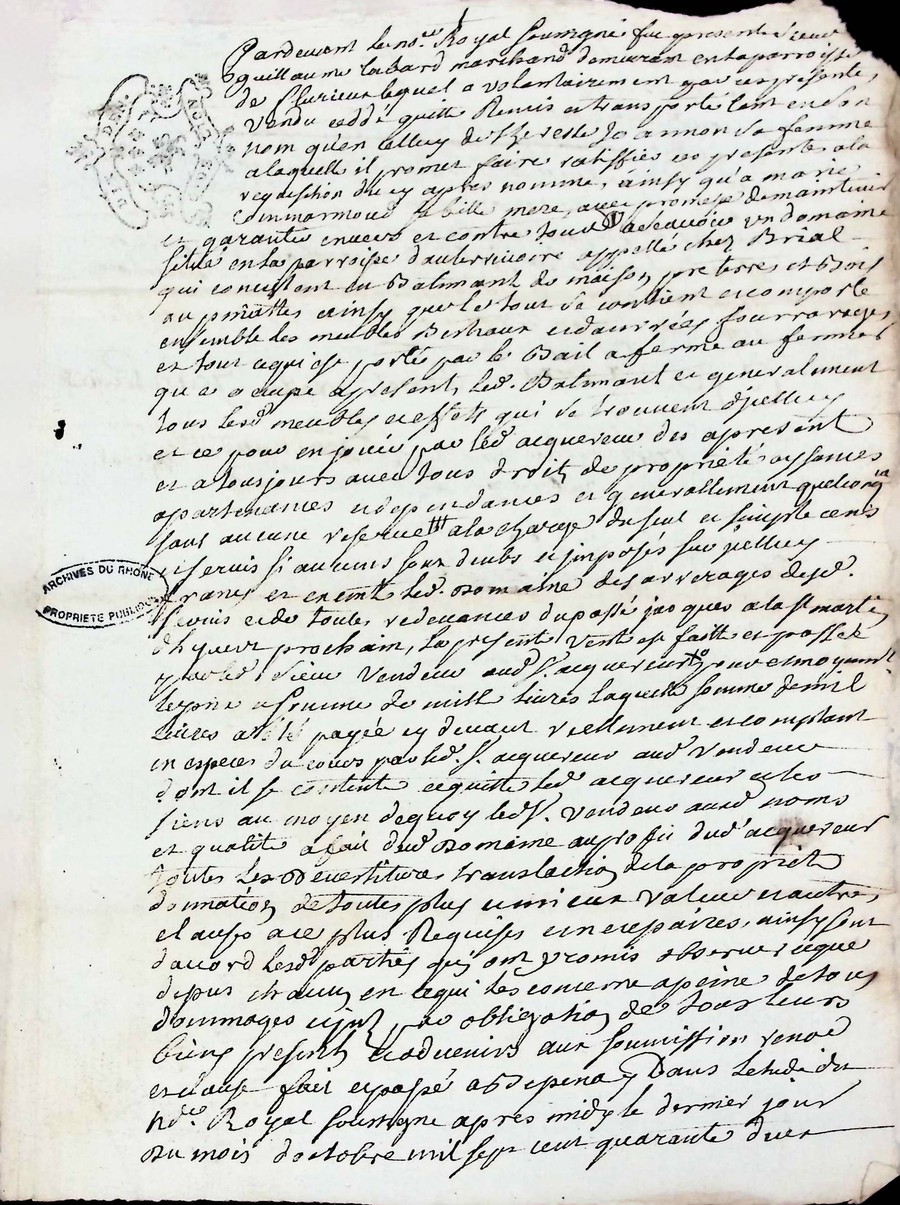 Pardevant le no.re Royal soussigné fut present sieur
guillaume labard marchand demurant en la parroisse
de fleurieux lequel a volontairement par ces presentes
vendu ceddé quitté Remis et transporté tant en son
nom qu'en celluy de therese Joannon sa femme
a laquelle il promet faire ratiffier ces presentes a la
requisition du cy apres nommé, ainsy qu'a marie
sa belle mere, avec promesse de maintenir
et garantir envers et contre tous a un domaine
situé en la parroisse d'auterivoire appellé chez Brial
qui consistent en Batimant de maison, pre terres et Bois
ainsy que le tout se contient et comporte
ensemble les meubles Bestiaux et danrées fourrarages
et tout ce qui est porté par le Bail a ferme au fermier
qui occupe apresent, led. Batimant et generalement
tous lesd meubles et effets qui se trouvent d'jcelluy
et ce pour en jouir par led acquereur des apresent
et a tousjours avec tous droits de proprieté aysances
apartenances et dependances et generallement quelconq
sans aucune reserve a la charge du seul et simple cens
et servis si aucuns sont deubs et jmposés sur jcelluy
franc et exempt led. Domaine des arrerages desd.
servis et de toutes redevances du passé jusques a la st martin
d'hyver prochain, la present vente est faitte et passée
par led sieur vendeur aud s.r acquereur pour et moyennant
le prix et somme de mille livres laquelle somme de mil
livres a été payée cy devant reellement et comptant
en especes du cours par led. s.r acquereur aud vendeur
dont il se contente et quitte led acquereur et les
siens au moyen de quoy led s.r vendeur aud noms
et qualité a fait dud Domaine au profit dud acquereur
toutes les Devestitures translation de la proprieté
donnation de toutes plus et mieux value et autres
clauses a ce plus Requises et necessaires, ainsy sont
d'accord lesd parties qui ont promis observer ce que
depus chacun en ce qui les concerne a peine de tous
dommages par obligation de tous leurs
biens presents et advenirs aux soumission renon
et clause fait et passé a Dans letude du
nd.re Royal soussigné apres midy le dernier jour
Du mois d'octobre mil sept cent quarante deux
ARCHIVES DU RHÔNE
PROPRIETE PUBLIQUE